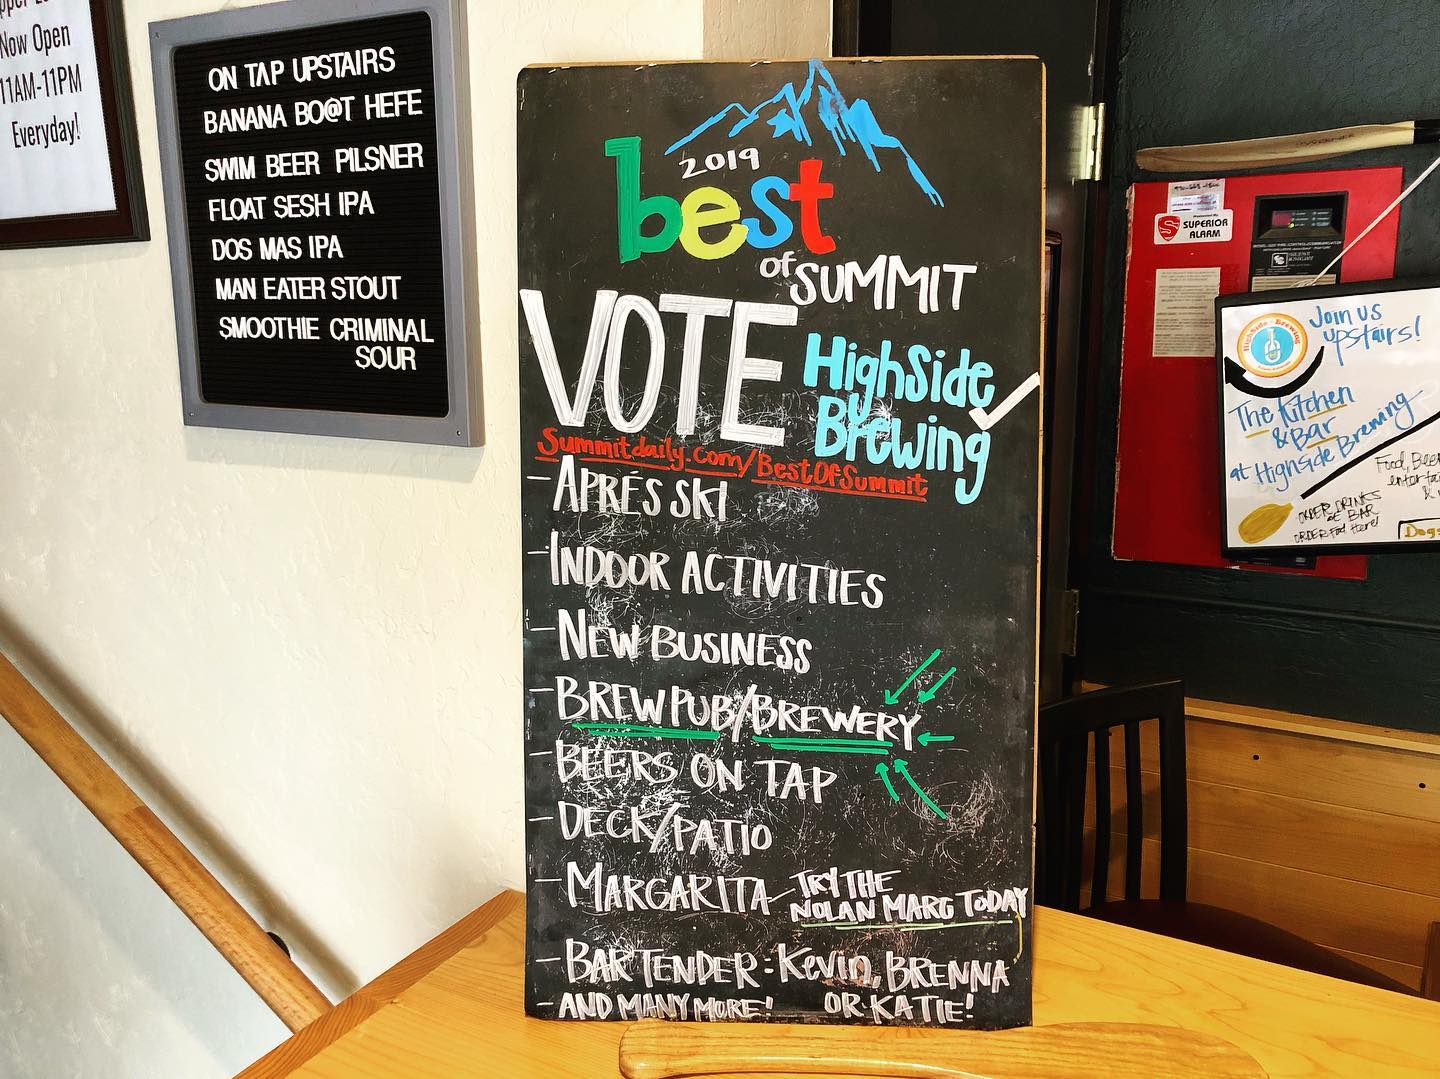 Now Open
11AM-11PM
Everyday!
ON TAP UPSTAIRS
BANANA BO@T HEFE
SWIM BEER PILSNER
FLOAT SESH IPA
DOS MAS IPA
MAN EATER STOUT
SMOOTHIE CRIMINAL
SOUR
2019
best
of SUMMIT
VOTE
HighSide
Brewing
Summitdaily.com/BestOfSummit
- APRÉS SKI
- INDOOR ACTIVITIES
- NEW BUSINESS
- BREWPUB/BREWERY
- BEERS ON TAP
- DECK/PATIO
- MARGARITA - TRY THE
NOLAN MARG TODAY
- BARTENDER: Kevin, BRENNA
- AND MANY MORE! OR KATIE!
SUPERIOR
ALARM
HighSide Brewing
Join us
upstairs!
The Kitchen
& Bar
at HighSide Brewing
Food, Beer
ORDER DRINKS
@ BAR
ORDER Food Here!